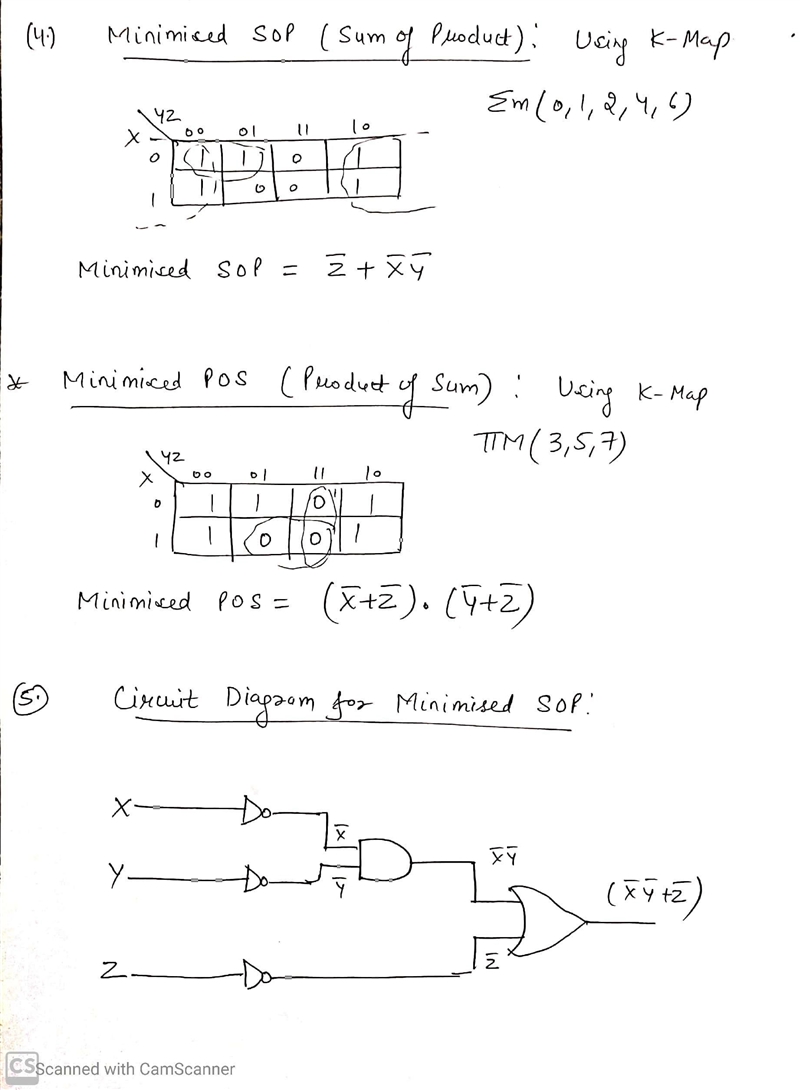 (4.) Minimised SOP (Sum of Product): Using K-Map
Σm(0,1,2,4,6)
YZ
X 00 01 11 10
0 1 1 0 1
1 1 0 0 1
Minimised SOP = Z̅ + X̅Y̅
* Minimised POS (Product of Sum): Using K-Map
ΠM(3,5,7)
YZ
X 00 01 11 10
0 1 1 0 1
1 1 0 0 1
Minimised POS = (X̅+Z̅).(Y̅+Z̅)
(5.) Circuit Diagram for Minimised SOP:
X
X̅
Y
Y̅
X̅Y̅
(X̅Y̅+Z̅)
Z
Z̅
CS Scanned with CamScanner